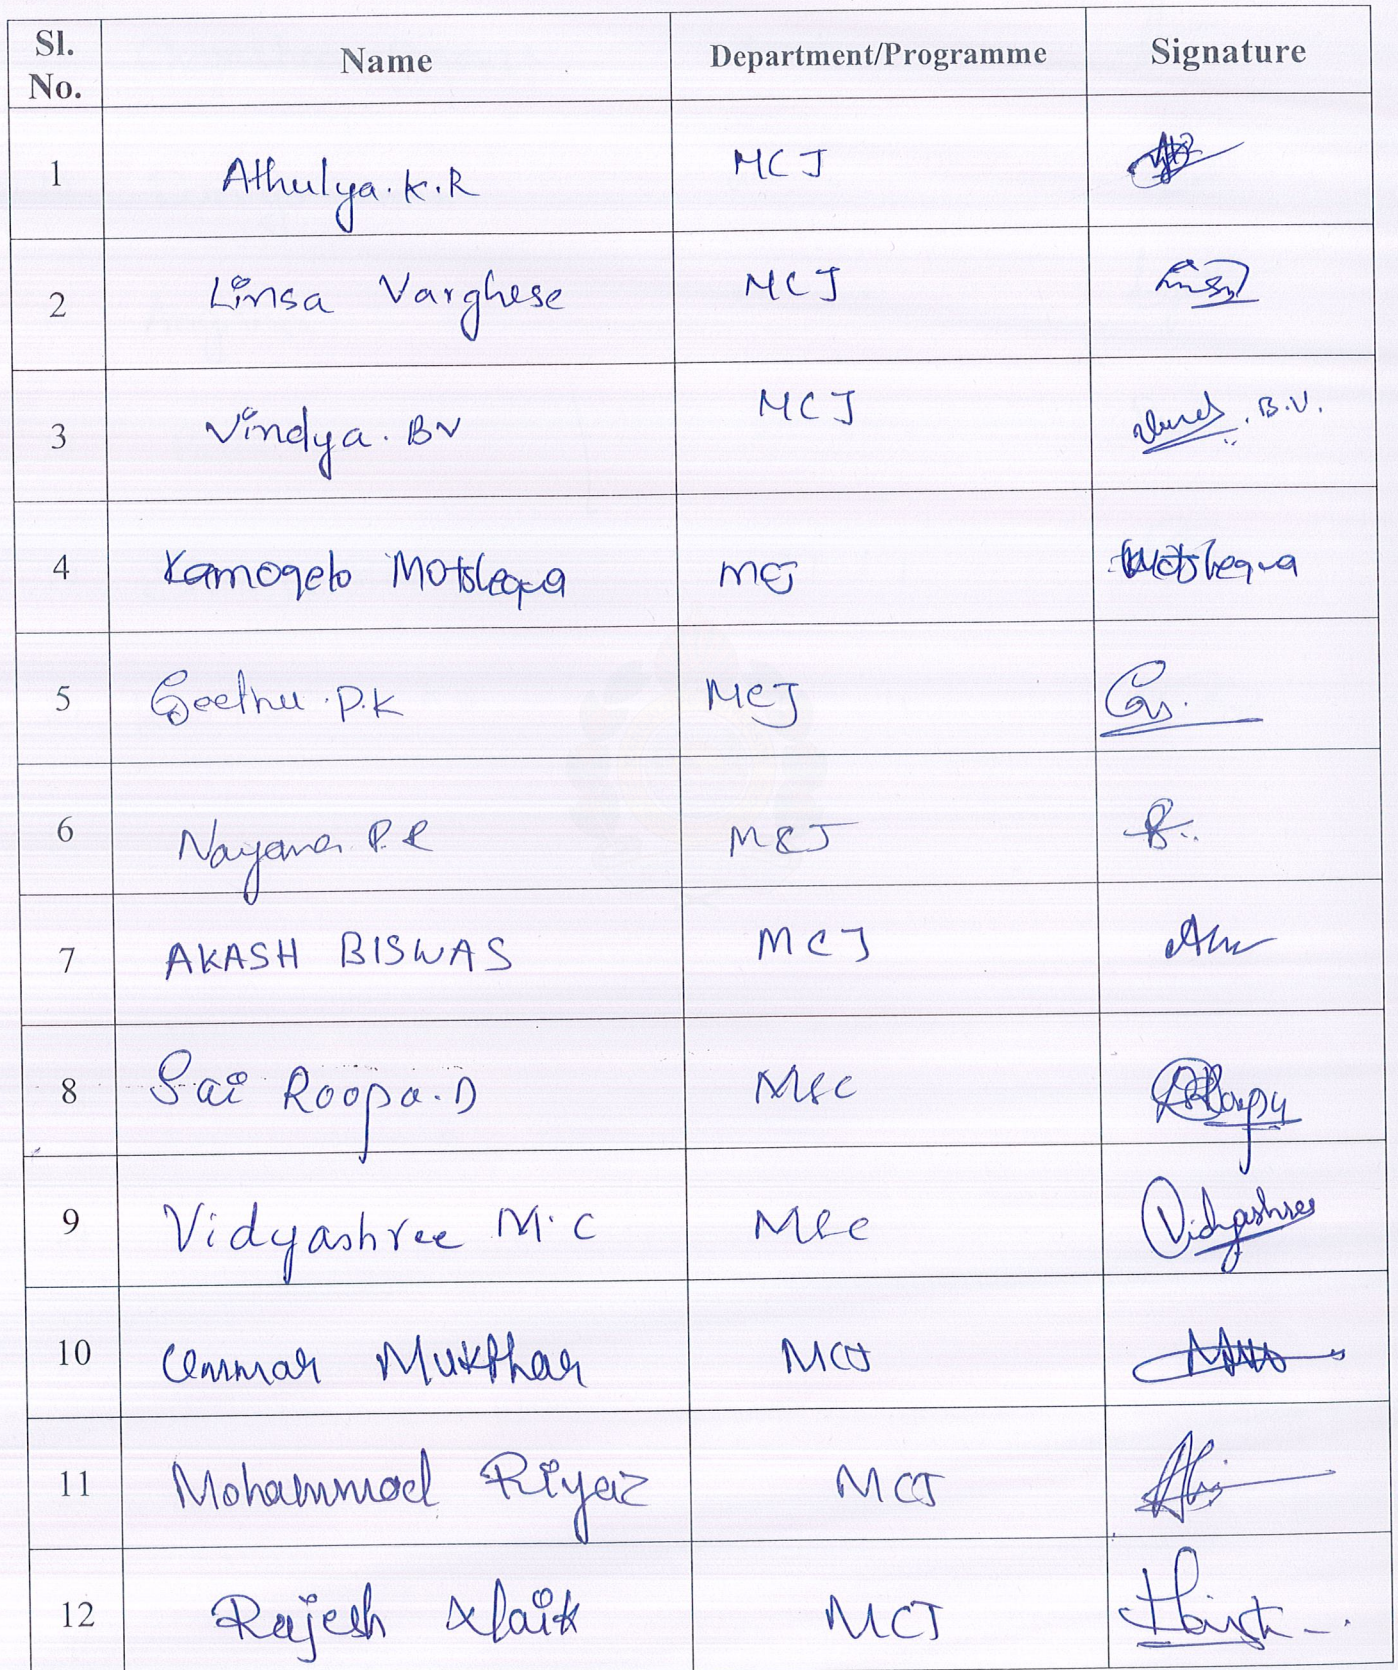 Sl. No. Name Department/Programme Signature
1 Athulya.K.R MCJ
2 Linsa Varghese MCJ
3 Vindya. BV MCJ B.V.
4 Kamogelo Motslegwa MCJ Motslegwa
5 Geethu.P.K MCJ
6 Nayana P.R MCJ
7 AKASH BISWAS MCJ
8 Sai Roopa.D MSC
9 Vidyashree M.C MSC Vidyashree
10 Ummar Mukthar MCJ
11 Mohammad Riyaz MCJ
12 Rajesh Naik MCJ